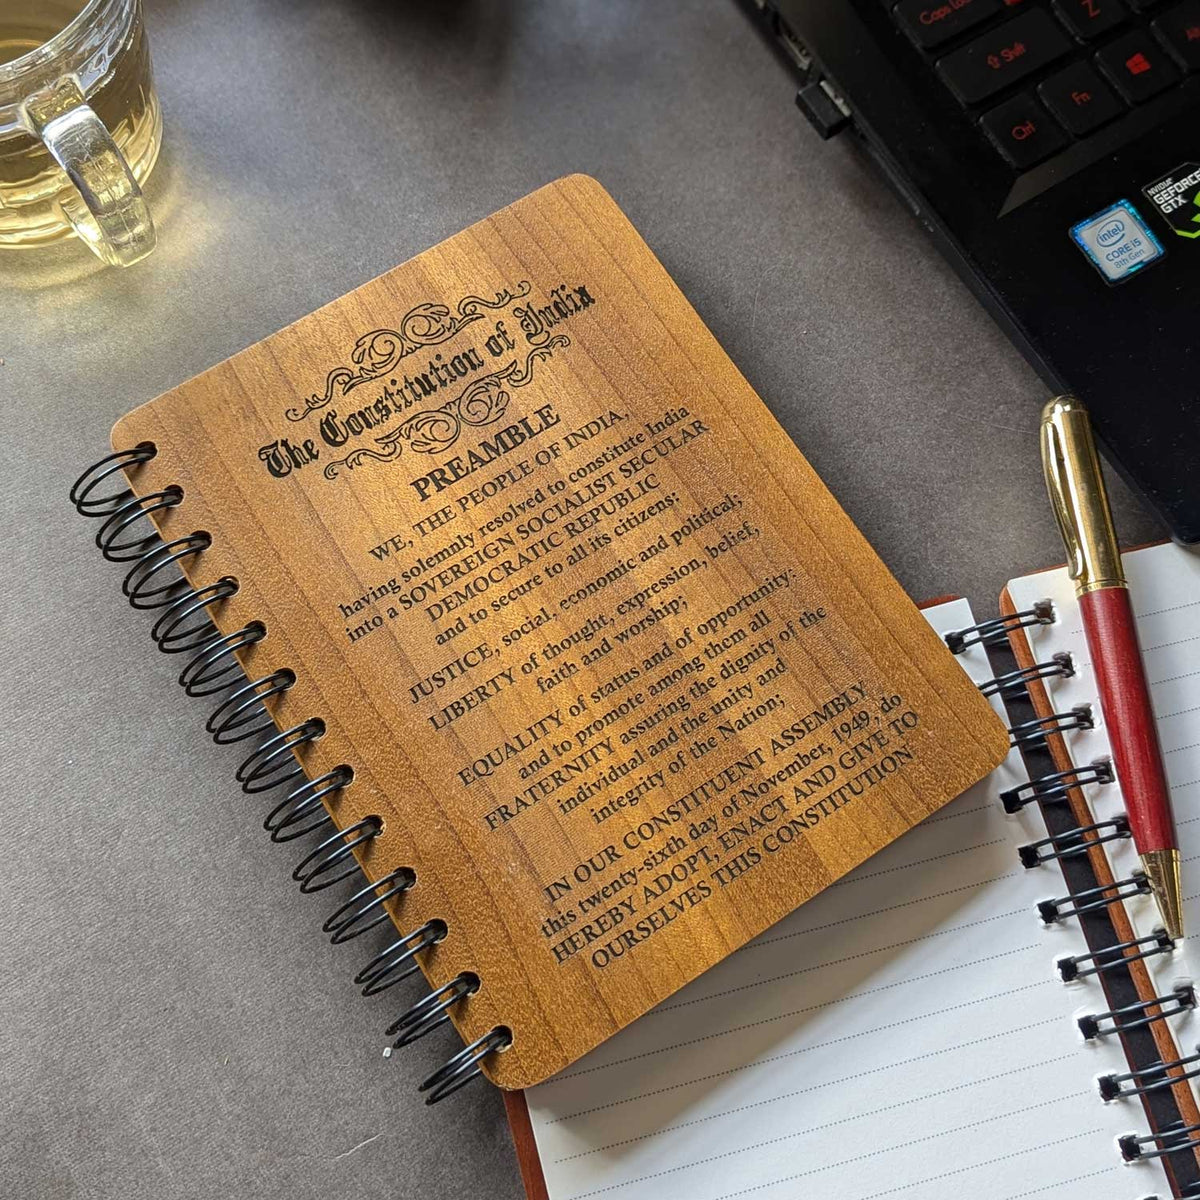 The Constitution of India
PREAMBLE
WE, THE PEOPLE OF INDIA,
having solemnly resolved to constitute India
into a SOVEREIGN SOCIALIST SECULAR
DEMOCRATIC REPUBLIC
and to secure to all its citizens:
JUSTICE, social, economic and political;
LIBERTY of thought, expression, belief,
faith and worship;
EQUALITY of status and of opportunity;
and to promote among them all
FRATERNITY assuring the dignity of the
individual and the unity and
integrity of the Nation;
IN OUR CONSTITUENT ASSEMBLY
this twenty-sixth day of November, 1949, do
HEREBY ADOPT, ENACT AND GIVE TO
OURSELVES THIS CONSTITUTION
Caps Lock
Z
Shift
Fn
Ctrl
Alt
NVIDIA
GEFORCE
GTX
intel
CORE i5
8th Gen